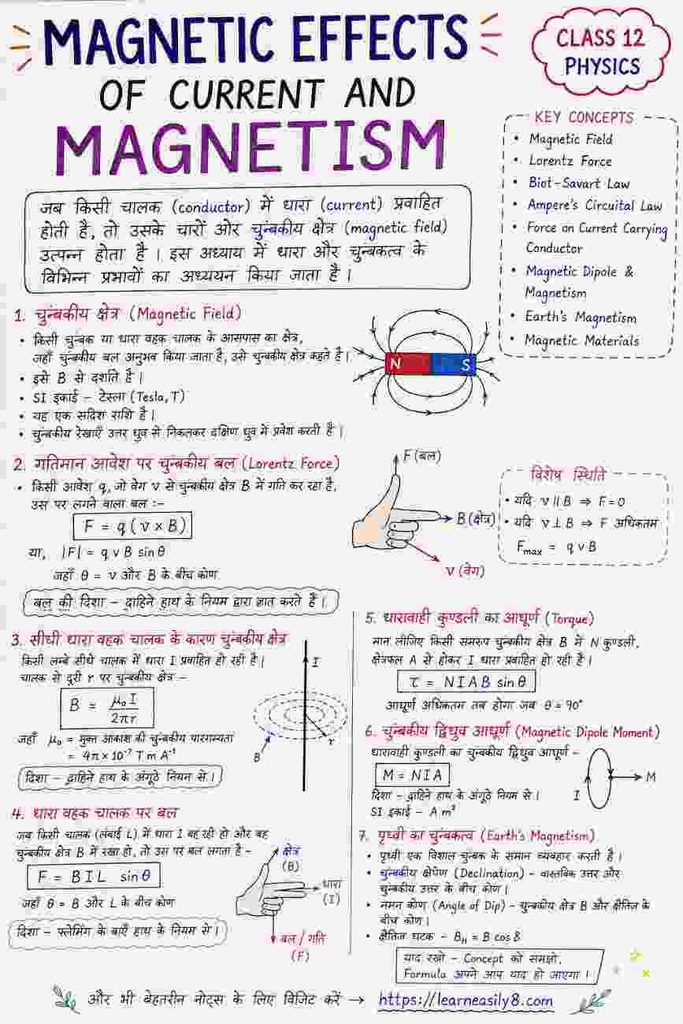 MAGNETIC EFFECTS
OF CURRENT AND
MAGNETISM
CLASS 12
PHYSICS
KEY CONCEPTS
• Magnetic Field
• Lorentz Force
• Biot-Savart Law
• Ampere's Circuital Law
• Force on Current Carrying
Conductor
• Magnetic Dipole &
Magnetism
• Earth's Magnetism
• Magnetic Materials
जब किसी चालक (conductor) में धारा (current) प्रवाहित
होती है, तो उसके चारों ओर चुंबकीय क्षेत्र (magnetic field)
उत्पन्न होता है। इस अध्याय में धारा और चुंबकत्व के
विभिन्न प्रभावों का अध्ययन किया जाता है।
1. चुंबकीय क्षेत्र (Magnetic Field)
• किसी चुंबक या धारा वहक चालक के आसपास का क्षेत्र,
जहाँ चुंबकीय बल अनुभव किया जाता है, उसे चुंबकीय क्षेत्र कहते हैं।
• इसे B से दर्शाते हैं।
• SI इकाई - टेस्ला (Tesla, T)
• यह एक सदिश राशि है।
• चुंबकीय रेखाएँ उत्तर ध्रुव से निकलकर दक्षिण ध्रुव में प्रवेश करती हैं।
N S
2. गतिमान आवेश पर चुंबकीय बल (Lorentz Force)
• किसी आवेश q, जो वेग v से चुंबकीय क्षेत्र B में गति कर रहा है,
उस पर लगने वाला बल :-
F = q (v × B)
या, |F| = q v B sin θ
जहाँ θ = v और B के बीच कोण
बल की दिशा - दाहिने हाथ के नियम द्वारा ज्ञात करते हैं।
F (बल)
B (क्षेत्र)
v (वेग)
विशेष स्थिति
• यदि v || B ⇒ F = 0
• यदि v ⊥ B ⇒ F अधिकतम
Fmax = q v B
3. सीधी धारा वहक चालक के कारण चुंबकीय क्षेत्र
किसी लम्बे सीधे चालक में धारा I प्रवाहित हो रही है।
चालक से दूरी r पर चुंबकीय क्षेत्र -
B = μ₀ I / 2πr
जहाँ μ₀ = मुक्त आकाश की चुंबकीय पारगम्यता
= 4π × 10⁻⁷ T m A⁻¹
दिशा - दाहिने हाथ के अंगूठे नियम से।
I
r
B
4. धारा वहक चालक पर बल
जब किसी चालक (लंबाई L) में धारा I बह रही हो और वह
चुंबकीय क्षेत्र B में रखा हो, तो उस पर बल लगता है -
F = B I L sin θ
जहाँ θ = B और L के बीच कोण
दिशा - फ्लेमिंग के बाएँ हाथ के नियम से।
क्षेत्र
(B)
धारा
(I)
बल / गति
(F)
5. धारावाही कुण्डली का आघूर्ण (Torque)
मान लीजिए किसी समरूप चुंबकीय क्षेत्र B में N कुण्डली,
क्षेत्रफल A से होकर I धारा प्रवाहित हो रही है।
τ = N I A B sin θ
आघूर्ण अधिकतम तब होगा जब θ = 90°
6. चुंबकीय द्विध्रुव आघूर्ण (Magnetic Dipole Moment)
धारावाही कुण्डली का चुंबकीय द्विध्रुव आघूर्ण -
M = N I A
दिशा - दाहिने हाथ के अंगूठे नियम से।
SI इकाई - A m²
I
M
7. पृथ्वी का चुंबकत्व (Earth's Magnetism)
• पृथ्वी एक विशाल चुंबक के समान व्यवहार करती है।
• चुंबकीय क्षेपण (Declination) - वास्तविक उत्तर और
चुंबकीय उत्तर के बीच कोण।
• नमन कोण (Angle of Dip) - चुंबकीय क्षेत्र B और क्षैतिज के
बीच कोण।
• क्षैतिज घटक - BH = B cos δ
याद रखो - Concept को समझो,
Formula अपने आप याद हो जाएगा।
और भी बेहतरीन नोट्स के लिए विजिट करें → https://learneasily8.com